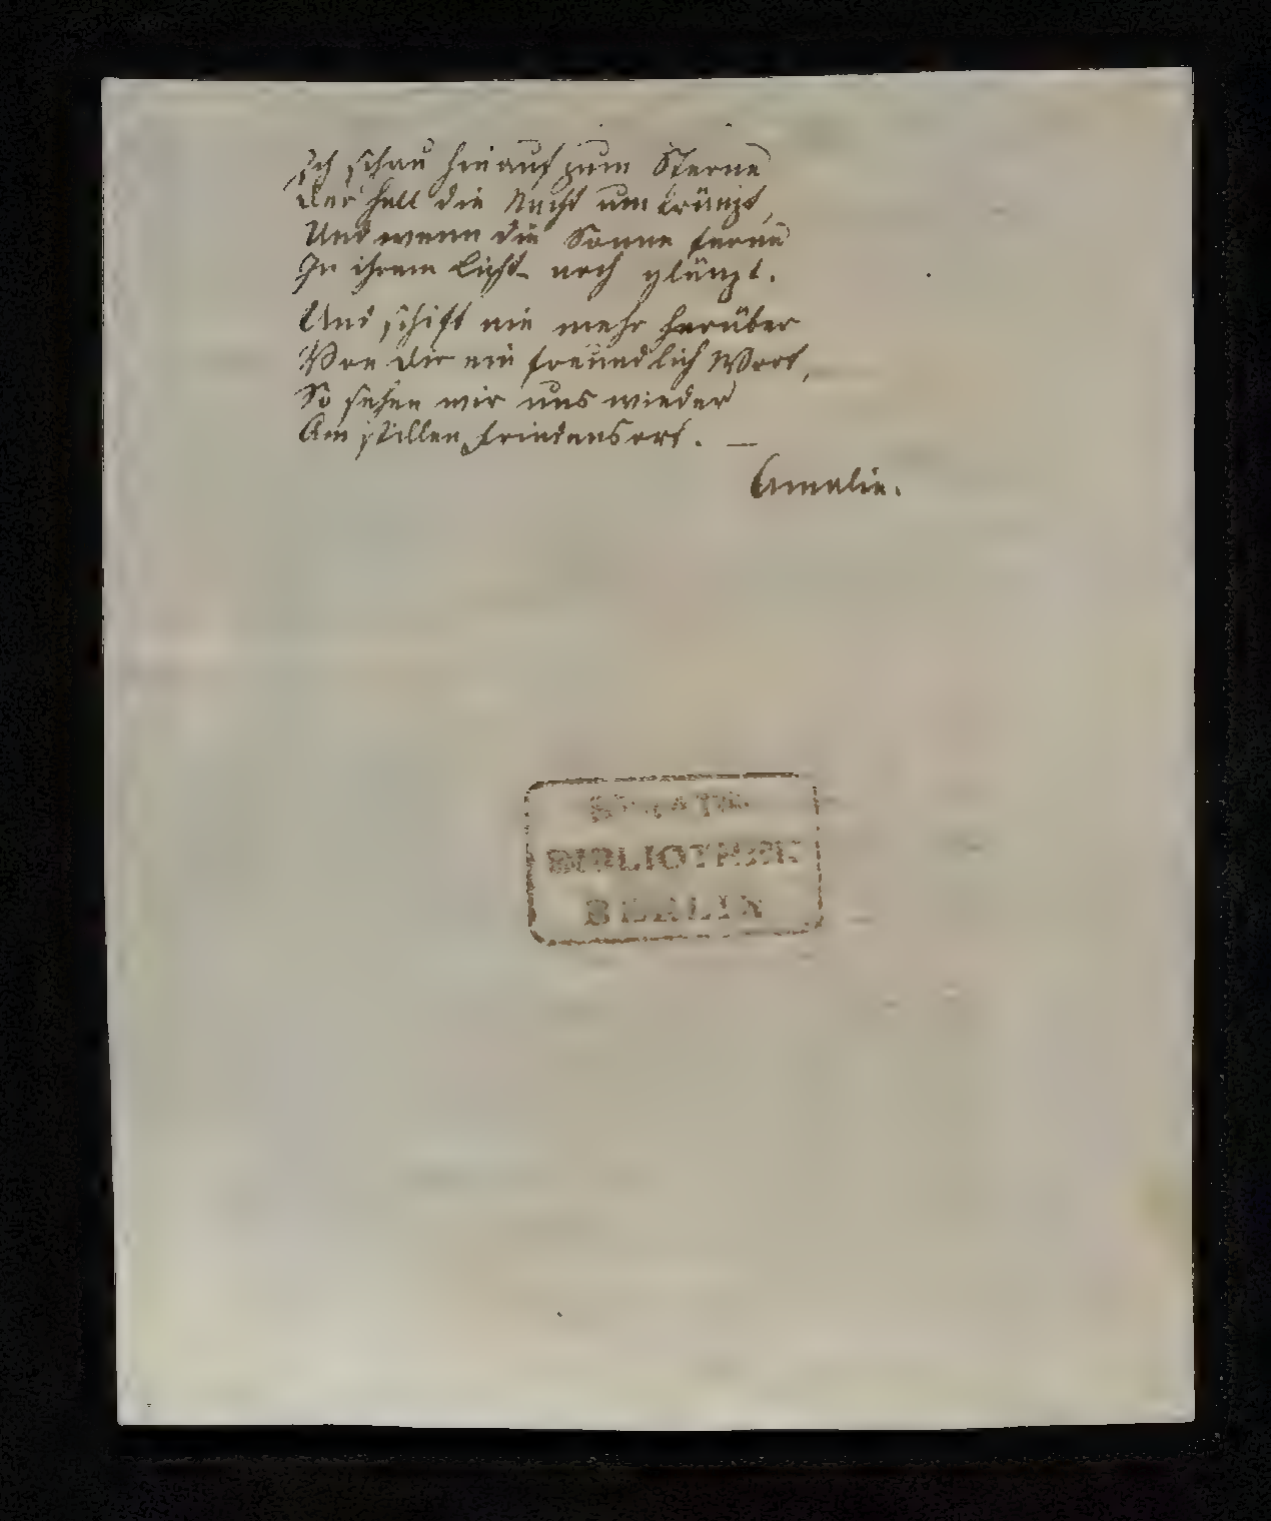 Ich schau hinauf zum Sterne
der hell die Nacht umkränzt,
Und wenn die Sonne ferne
In ihrem Licht noch glänzt.
Und schift nie mehr herüber
Von dir ein freundlich Wort,
So sehen wir uns wieder
Am stillen Friedensort. —
Amalie.
STAATS
BIBLIOTHEK
BERLIN